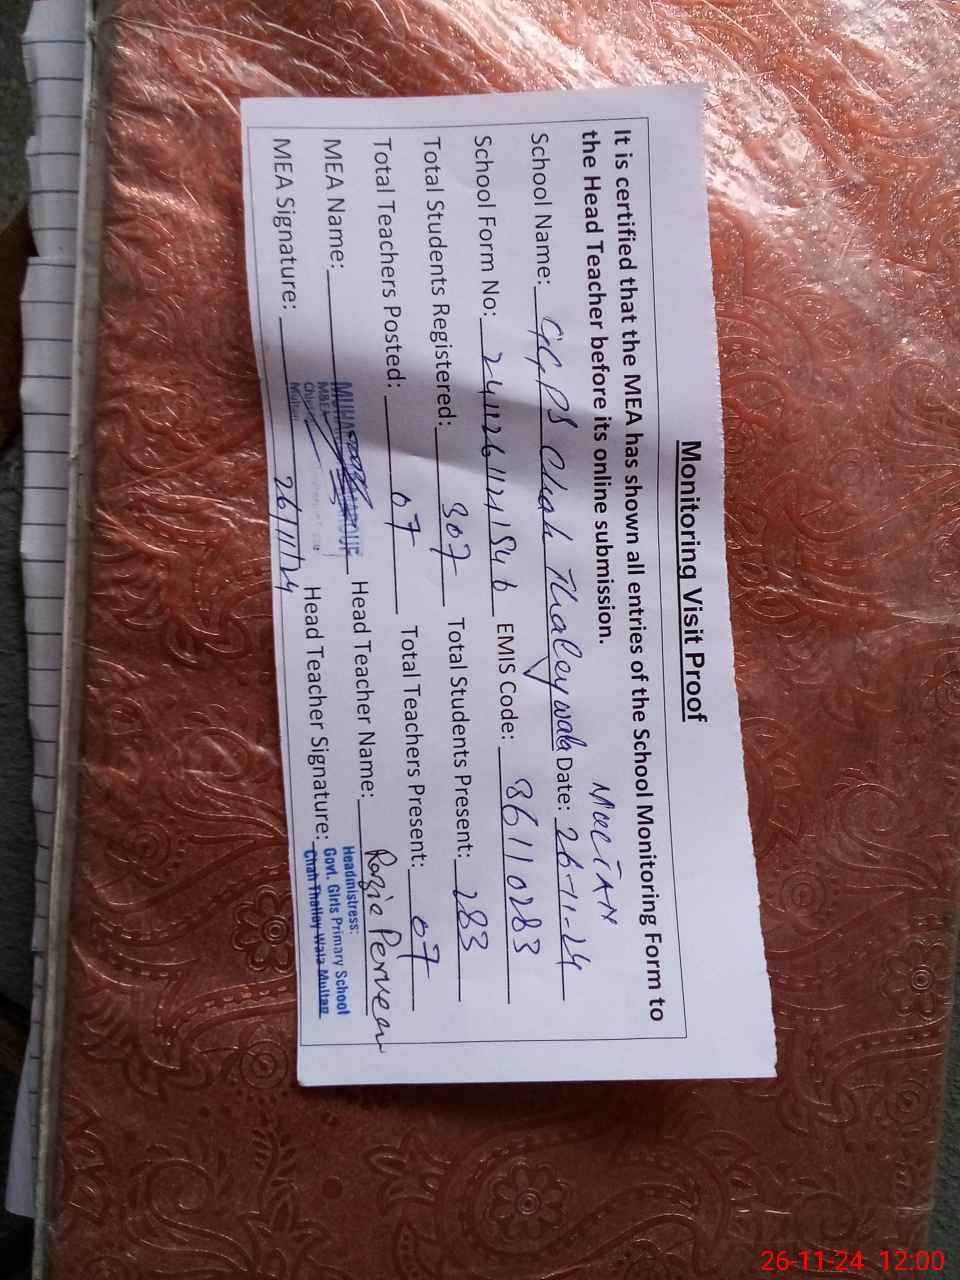 Monitoring Visit Proof
It is certified that the MEA has shown all entries of the School Monitoring Form to
the Head Teacher before its online submission.
MULTAN
School Name: GGPS Chah Thaleywala Date: 26-11-24
School Form No: EMIS Code: 36110283
Total Students Registered: 307 Total Students Present: 283
Total Teachers Posted: 07 Total Teachers Present: 07
MEA Name: Head Teacher Name: Razia Perveen
MEA Signature: 26/11/24 Head Teacher Signature:
Headmistress:
Govt. Girls Primary School
Chah Thalley Wala Multan
26-11-24 12:00